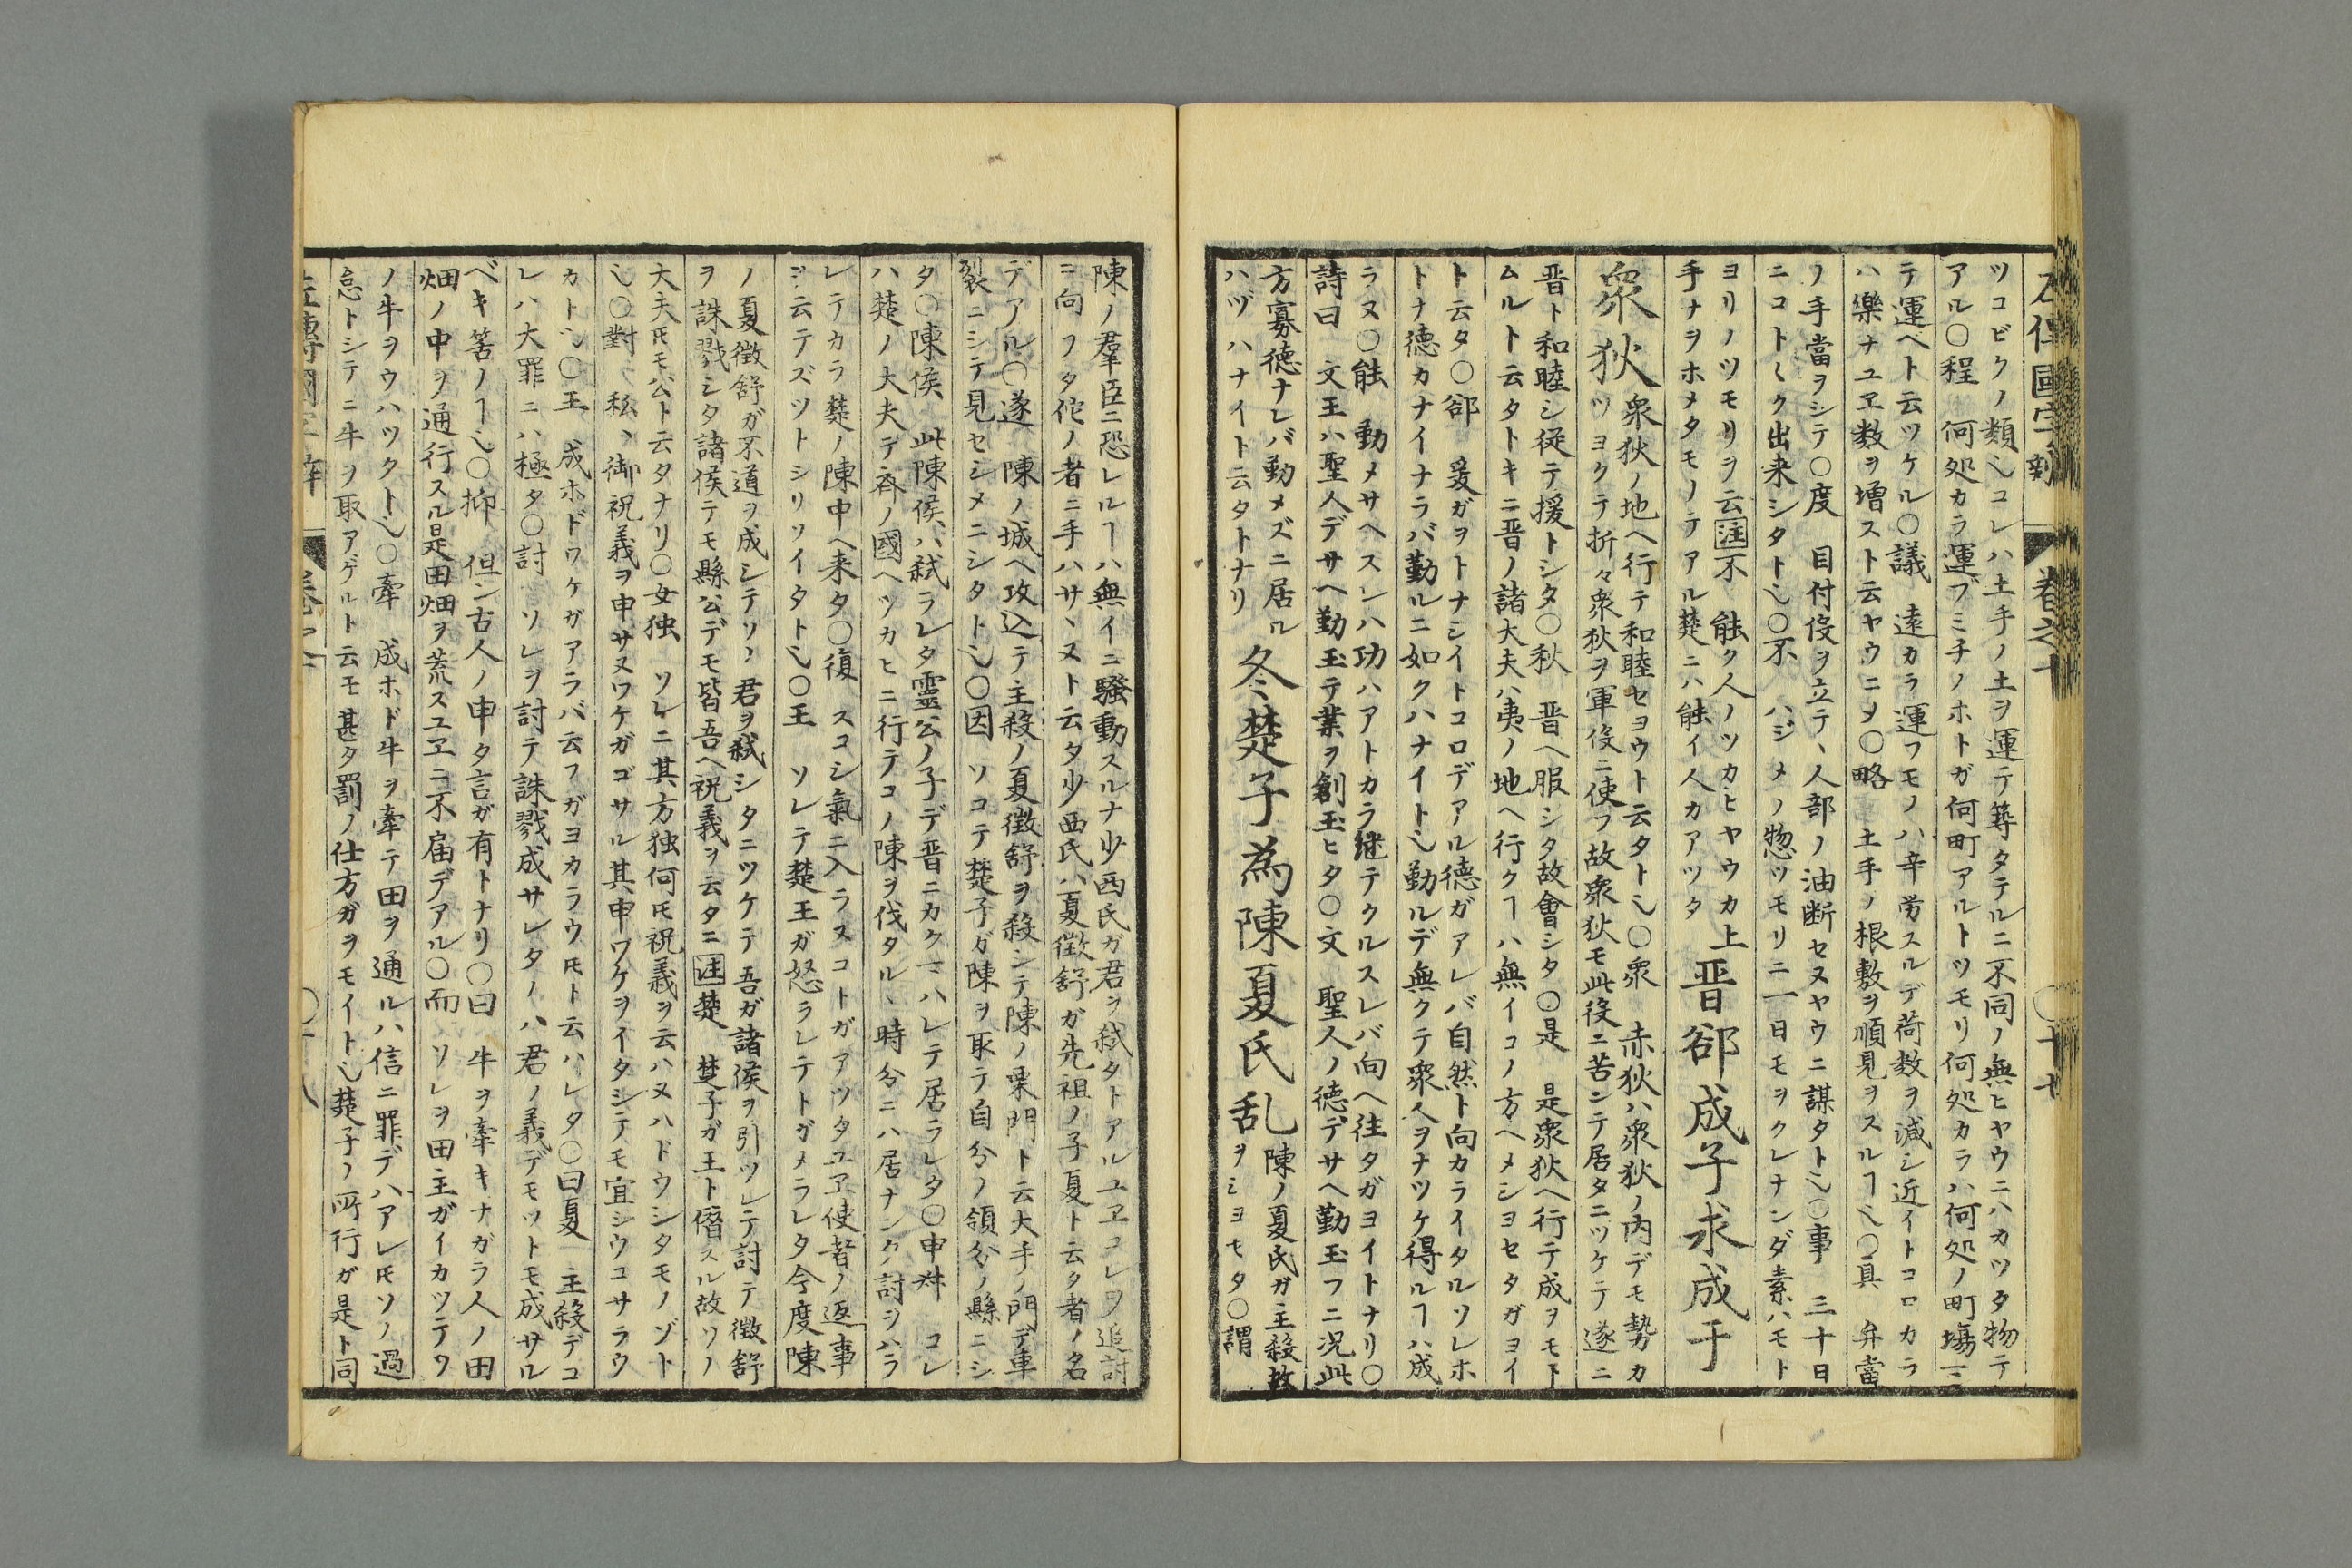 左傳國字辯 巻之十 〇十七
ツコビクノ類乀コレハ土手ノ土ヲ運テ築タテルニ不同ノ無ヒヤウニハカツタ物テ
アル〇程 何処カラ運ブミチノホトガ何町アルトツモリ何処カラハ何処ノ町塲ニ
テ運ベト云ツケル〇議 遠カラ運フモノハ辛労スルデ荷数ヲ减シ近イトコロカラ
ハ樂ナユヱ数ヲ増スト云ヤウニヲ〇略 土手ノ根敷ヲ順見ヲスルヿ乀〇具 弁當
ノ手當ヲシテ〇度 目付役ヲ立テ、人部ノ油断セヌヤウニ謀タト乀〇事 三十日
ニコト〱ク出来シタト乀〇不 ハジメノ惣ツモリニ一日モヲクレナンダ素ハモト
ヨリノツモリヲ云注不 能ク人ノツカヒヤウカ上
手ナヲホメタモノテアル楚ニハ能イ人カアツタ
晋郤成子求成于
衆狄
衆狄ノ地ヘ行テ和睦セヨウト云タト乀〇衆 赤狄ハ衆狄ノ内デモ勢カ
ツヨクテ折々衆狄ヲ軍役ニ使フ故衆狄モ此役ニ苦ンテ居タニツケテ遂ニ
晋ト和睦シ従テ援トシタ〇秋 晋ヘ服シタ故會シタ〇是 是衆狄ヘ行テ成ヲモト
ムルト云タトキニ晋ノ諸大夫ハ夷ノ地ヘ行クヿハ無イコノ方ヘメシヨセタガヨイ
ト云タ〇郤 爰ガヲトナシイトコロデアル德ガアレバ自然ト向カライタルソレホ
トナ德カナイナラバ勤ルニ如クハナイト乀勤ルデ無クテ衆人ヲナツケ得ルヿハ成
ラヌ〇能 動メサヘスレハ功ハアトカラ継テクルスレバ向ヘ往タガヨイトナリ〇
詩曰 文王ハ聖人デサヘ勤玉テ業ヲ創玉ヒタ〇文 聖人ノ德デサヘ勤玉フニ况此
方寡德ナレバ勤メズニ居ル
ハヅハナイト云タトナリ
冬楚子為陳夏氏乱
陳ノ夏氏ガ主殺故
ヲシヨセタ〇謂
陳ノ羣臣ニ恐レルヿハ無イニ騒動スルナ少西氏ガ君ヲ弑タトアルユヱコレヲ追討
ニ向フタ佗ノ者ニ手ハサヽヌト云タ少西氏ハ夏徴舒ガ先祖ノ子夏ト云タ者ノ名
デアル〇遂 陳ノ城ヘ攻込テ主殺ノ夏徴舒ヲ殺シテ陳ノ栗門ト云大手ノ門デ車
裂ニシテ見セシメニシタト乀〇因 ソコテ楚子ガ陳ヲ取テ自分ノ領分ノ縣ニシ
タ〇陳侯 此陳侯ハ弑ラレタ靈公ノ子デ晋ニカクマハレテ居ラレタ〇申叔 コレ
ハ楚ノ大夫デ斉ノ國ヘツカヒニ行テコノ陳ヲ伐タルヽ時分ニハ居ナンク討ヲハラ
レテカラ楚ノ陳中ヘ来タ〇復 スコシ氣ニ入ラヌコトガアツタユヱ使者ノ返事
ヲ云テズツトシリソイタト乀〇王 ソレテ楚王ガ怒ラレテトガメラレタ今度陳
ノ夏徴舒ガ不道ヲ成シテソノ君ヲ弑シタニツケテ吾ガ諸侯ヲ引ツレテ討テ徴舒
ヲ誅戮シタ諸侯テモ縣公デモ皆吾ヘ祝義ヲ云タニ注楚 楚子ガ王ト僭スル故ソノ
大夫𪜈モ公ト云タナリ〇女独 ソレニ其方独何𪜈祝義ヲ云ハヌハドウシタモノゾト
乀〇對 私ヽ御祝義ヲ申サヌワケガゴサル其申ワケヲイタシテモ宜シウコサラウ
カト乀〇王 成ホドワケガアラバ云フガヨカラウ𪜈ト云ハレタ〇曰夏 主殺デコ
レハ大罪ニハ極タ〇討 ソレヲ討テ誅戮成サレタノハ君ノ義デモツトモ成サル
ベキ筈ノヿ乀〇抑 但シ古人ノ申タ言ガ有トナリ〇曰 牛ヲ牽キナガラ人ノ田
畑ノ中ヲ通行スル是田畑ヲ荒スユヱニ不届デアル〇而 ソレヲ田主ガイカツテワ
ノ牛ヲウハツタト乀〇牽 成ホド牛ヲ牽テ田ヲ通ルハ信ニ罪デハアレ𪜈ソノ過
怠トシテニ牛ヲ取アゲルト云モ甚タ罰ノ仕方ガヲモイト乀楚子ノ所行ガ是ト同
左傳國字辯